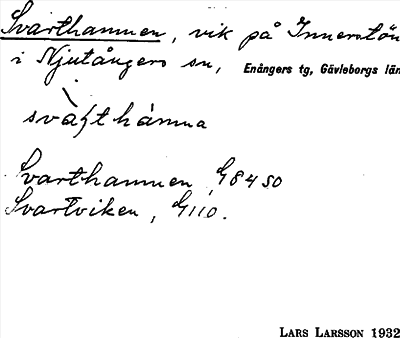 Svarthamnen, vik på Innerstön
i Njutångers sn, Enångers tg, Gävleborgs län
svàʈt hámna
Svarthamnen G84 SO
Svartviken, G110.
LARS LARSSON 1932